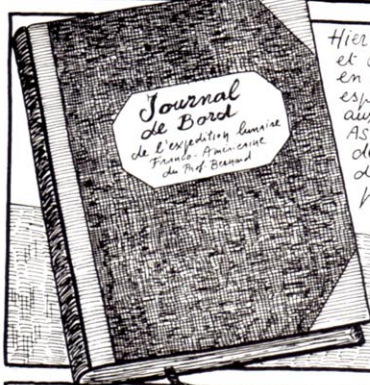 Journal
de Bord
de l'expedition lunaire
Franco-Américaine
du Prof. Bernard
Hier
et
en
esp
aus
AS
de
d